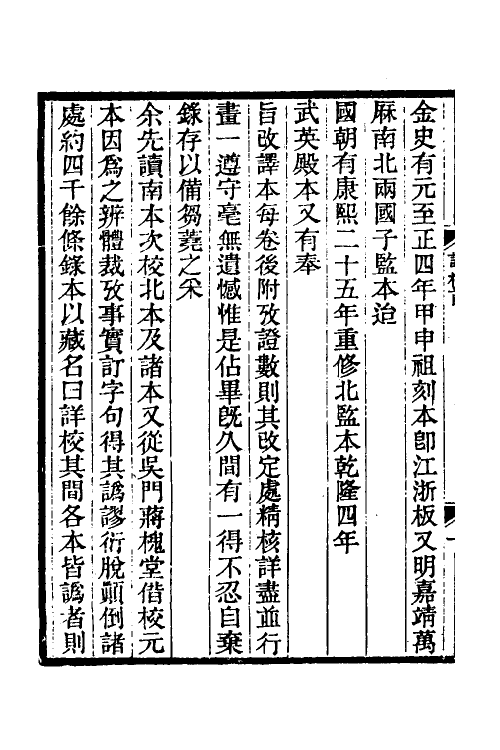 金史有元至正四年甲申祖刻本卽江浙板又明嘉靖萬
厤南北兩國子監本洽
國朝有康熙二十五年重修北監本乾隆四年
武英殿本又有奉
旨改譯本每卷後附攷證數則其改定處精核詳盡並行
畫一遵守毫無遺憾惟是佔畢旣久間有一得不忍自棄
錄存以備芻蕘之采
余先讀南本次校北本及諸本又從吳門蔣槐堂借校元
本因爲之辨體裁攷事實訂字句得其譌謬衍脫顚倒諸
處約四千餘條錄本以藏名曰詳校其間各本皆譌者則